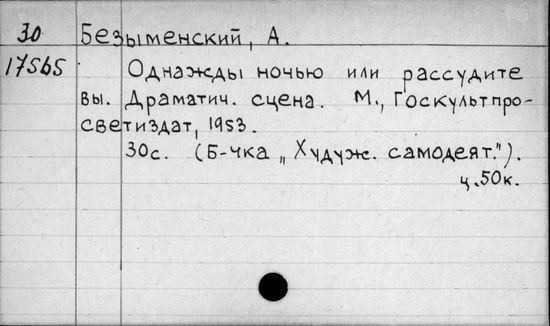 30 Безыменский, А.
17565 Однажды ночью или рассудите
вы. Драматич. сцена. М., Госкультпро-
светиздат, 1953.
30с. (Б-чка „Худуж. самодеят.").
ц.50к.